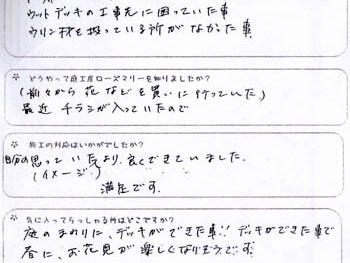 ウッドデッキの工事先に困っていた事
ウリン材を扱っている所がなかった事
☆ どうやって庭工房ローズマリーを知りましたか？
(前々から花などを買いに行っていた。)
最近チラシが入っていたので
☆ 施工の対応はいかがでしたか？
自分の思っていたより、良くできていました。
(イメージ)
満足です。
☆ 気に入ってらっしゃる所はどこですか？
庭のまわりに、デッキができた事!! デッキができた事で
春に、お花見が楽しくなりそうです。